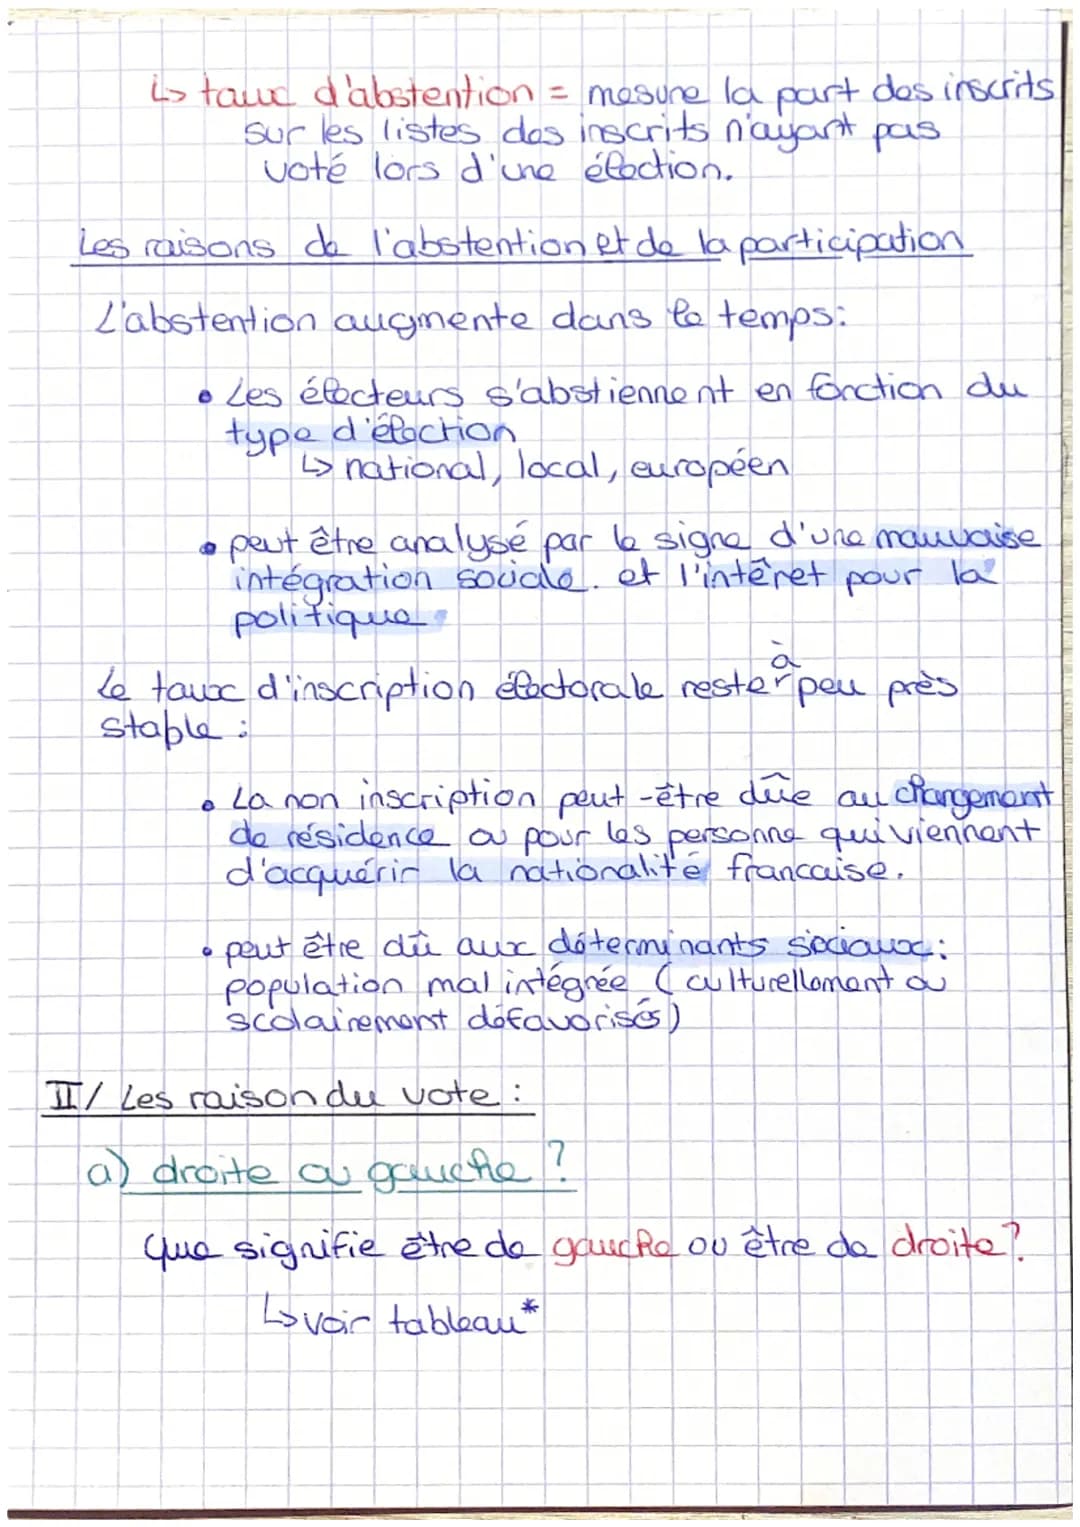 ↳ taux d'abstention = mesure la part des inscrits
sur les listes des inscrits n'ayant pas
voté lors d'une élection.
Les raisons de l'abstention et de la participation
L'abstention augmente dans le temps:
• Les électeurs s'abstiennent en fonction du
type d'élection
↳ national, local, européen
• peut être analysé par le signe d'une mauvaise
intégration sociale. et l'intêret pour la
politique
à
Le taux d'inscription électorale rester peu près
stable :
• La non inscription peut-être dûe au changement
de résidence ou pour les personne qui viennent
d'acquérir la nationalité francaise.
• peut être dû aux déterminants sociaux:
population mal intégrée (culturellement ou
scolairement défavorisés)
II/ Les raison du vote :
a) droite ou gauche ?
Que signifie être de gauche ou être de droite?
↳ voir tableau*